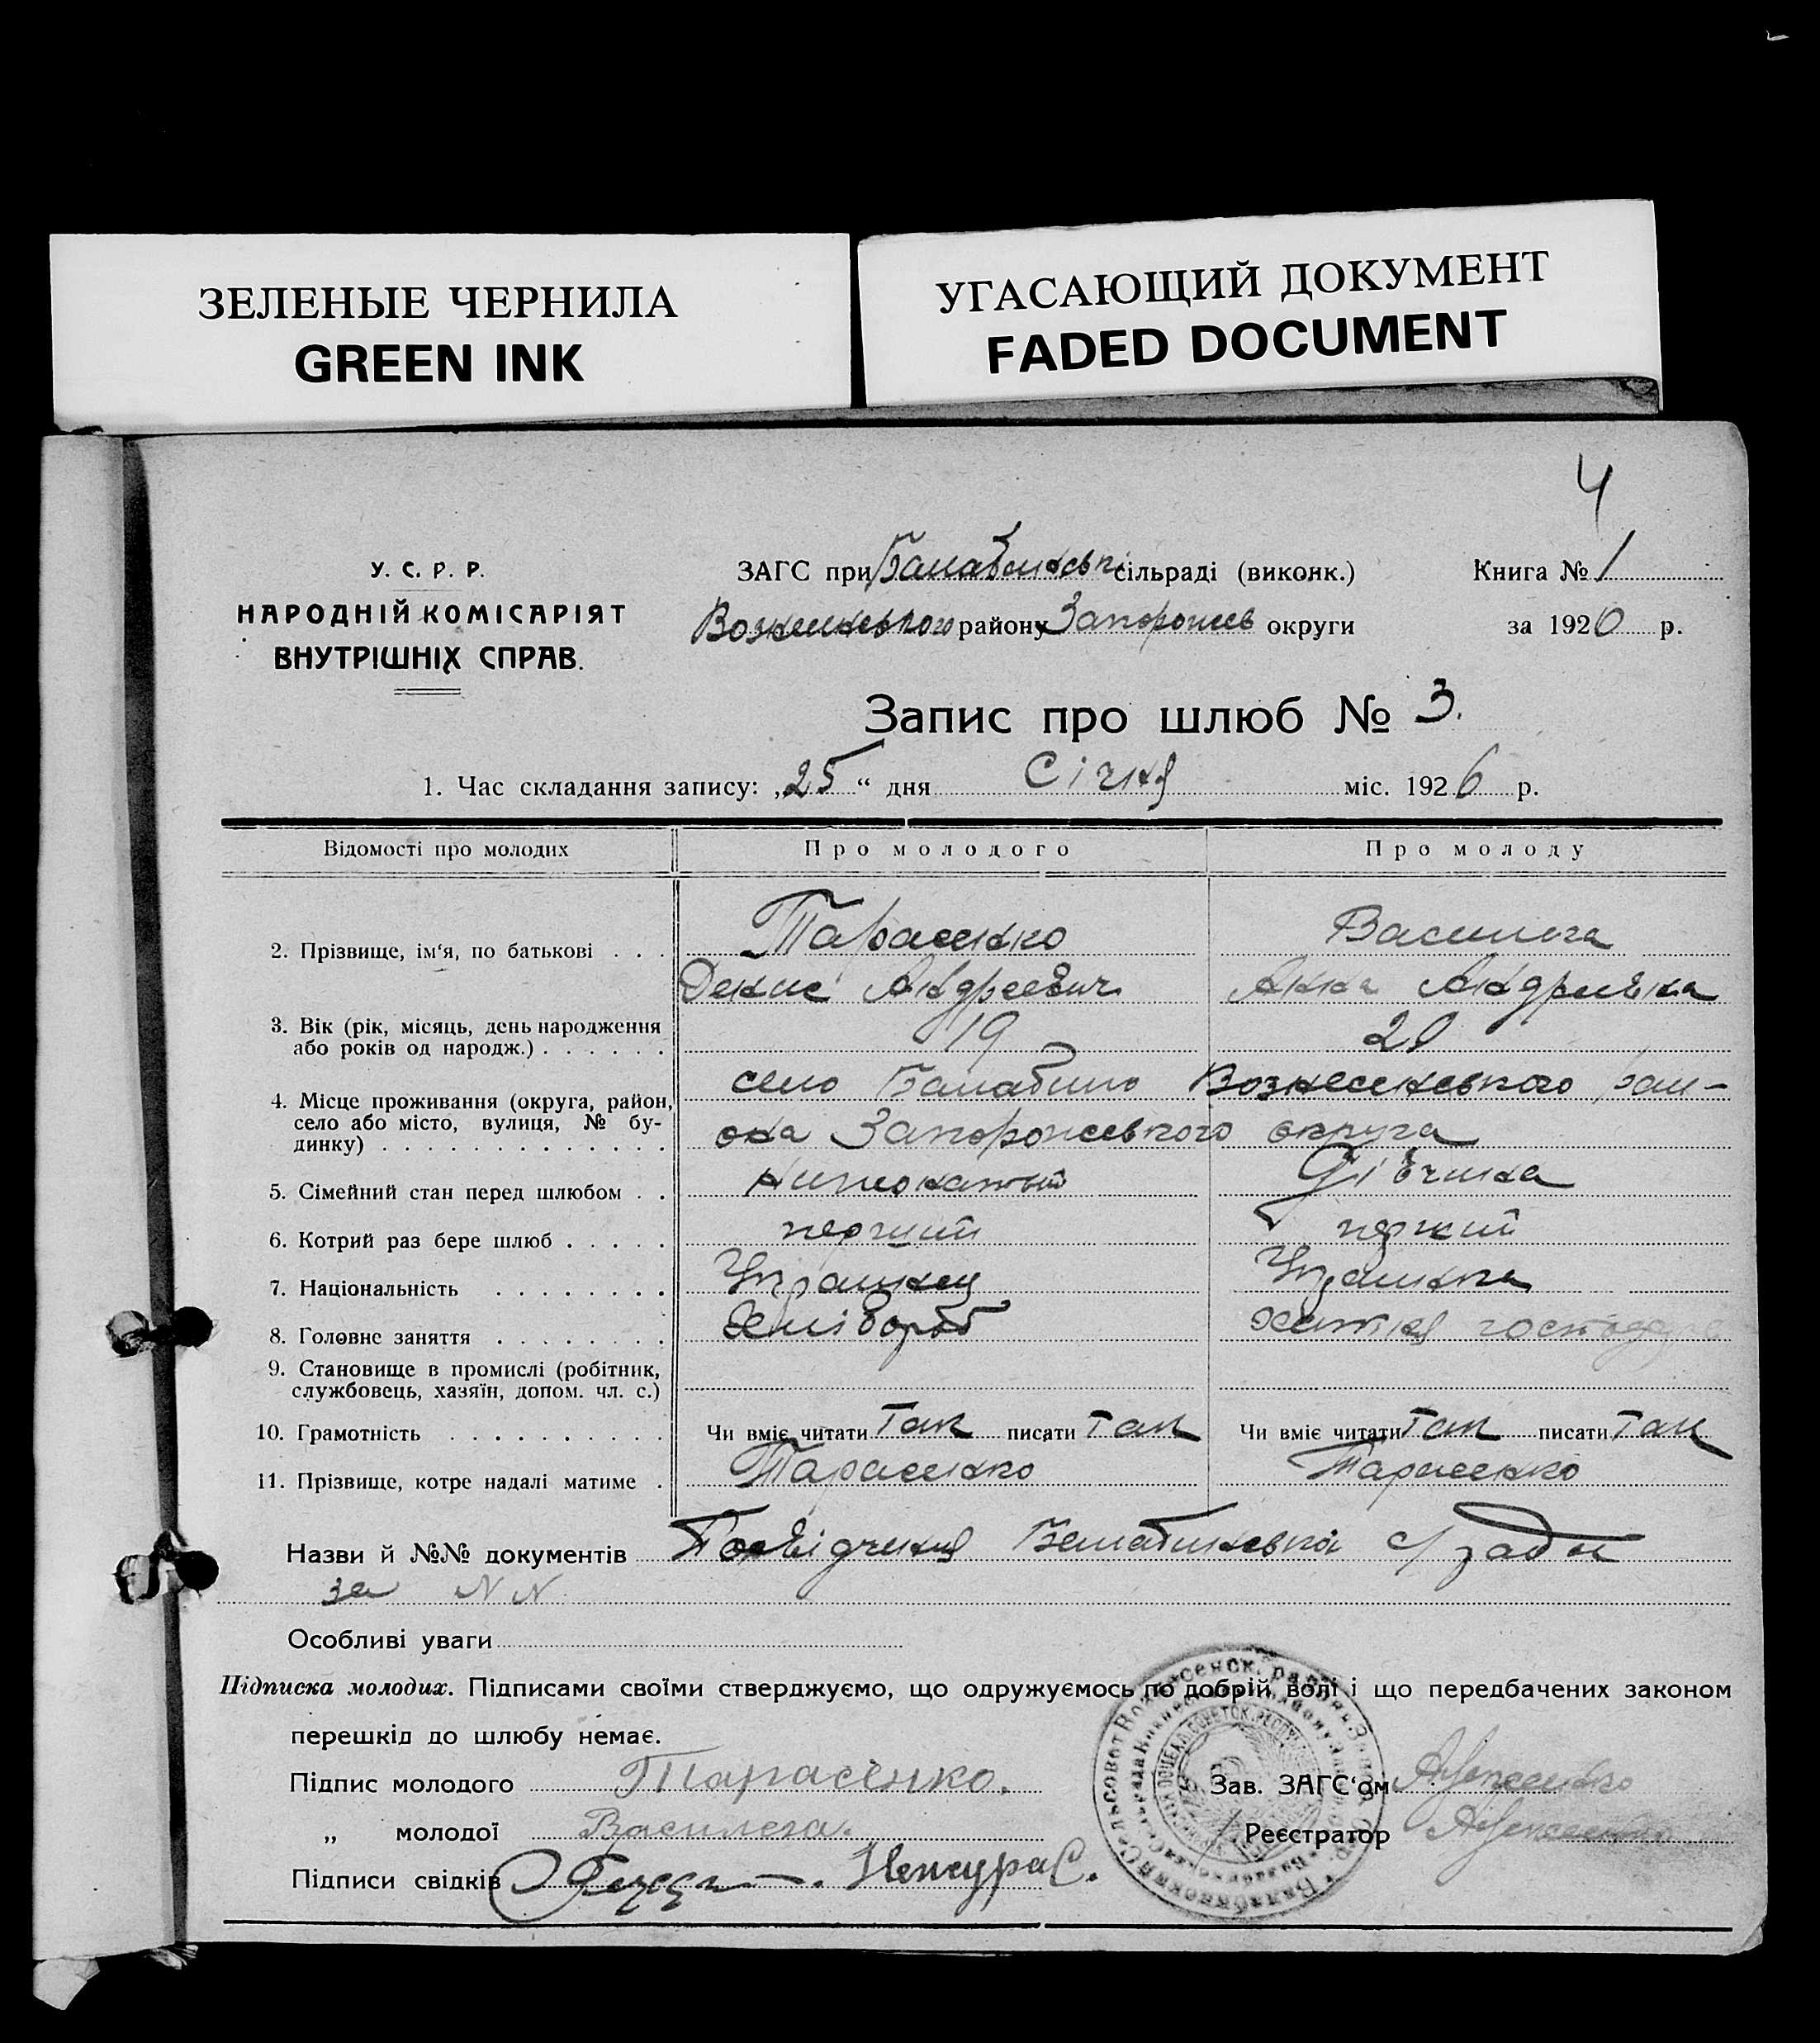 ЗЕЛЕНЫЕ ЧЕРНИЛА
GREEN INK
УГАСАЮЩИЙ ДОКУМЕНТ
FADED DOCUMENT
4
У. С. Р. Р.
НАРОДНІЙ КОМІСАРІЯТ
ВНУТРІШНІХ СПРАВ.
ЗАГС при Балабинськ сільраді (виконк.)
Книга № 1
району Запорожев округи
за 1926 р.
Запис про шлюб № 3.
1. Час складання запису: „25“ дня Січня міс. 1926 р.
Відомості про молодих
Про молодого
Про молоду
2. Прізвище, ім'я, по батькові . . .
Тарасенко
Денис Андреевич
Василега
Анна Андреівна
3. Вік (рік, місяць, день народження або років од народж.) . . . . . .
19
20
4. Місце проживання (округа, район, село або місто, вулиця, № будинку) . . . . . . . . . . . . .
село Балабино Вознесенського рай-
она Запорожського округа
5. Сімейний стан перед шлюбом . .
Дівчина
6. Котрий раз бере шлюб . . . . .
перший
перший
7. Національність . . . . . . . .
Українец
Українка
8. Головне заняття . . . . . . .
Хлібороб
хатня господар
9. Становище в промислі (робітник, службовець, хазяїн, допом. чл. с.)
10. Грамотність . . . . . . . . . .
Чи вміє читати Так писати Так
Чи вміє читати Так писати Так
11. Прізвище, котре надалі матиме .
Тарасенко
Тарасенко
Назви й №№ документів Посвідчення Балабинської с/ради
за N N
Особливі уваги
Підписка молодих. Підписами своїми стверджуємо, що одружуємось по добрій волі і що передбачених законом
перешкід до шлюбу немає.
Підпис молодого Тарасенко.
Зав. ЗАГС'ом
„ молодої Василега.
Реєстратор
Підписи свідків